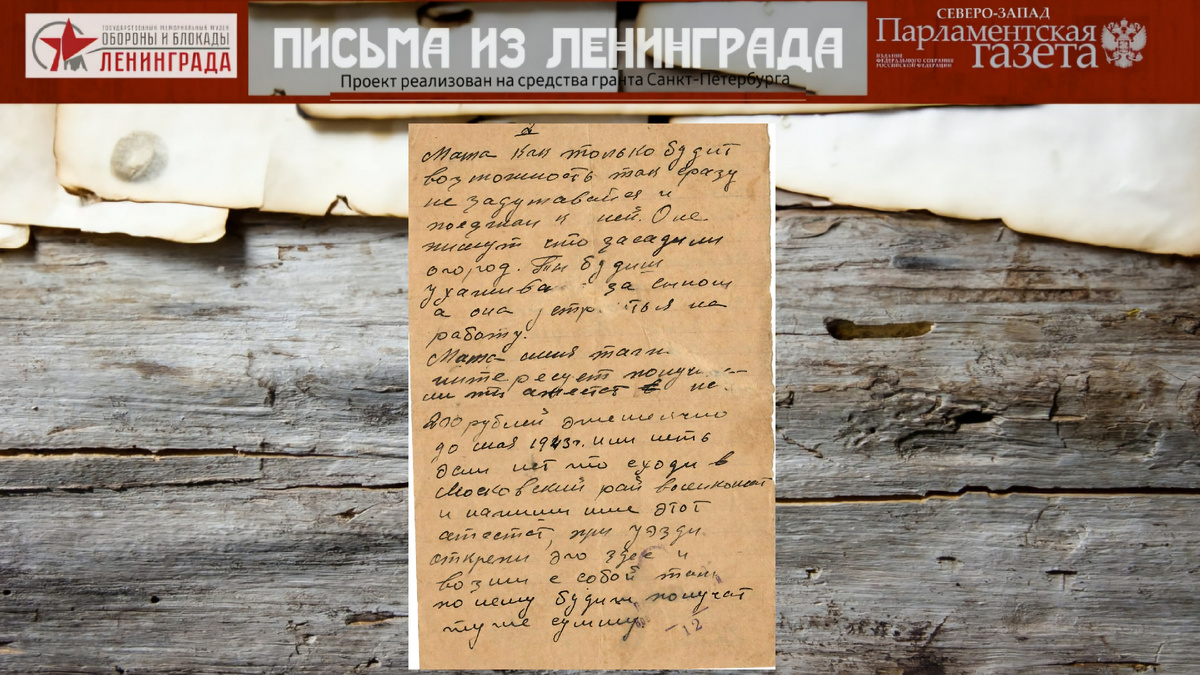 ГОСУДАРСТВЕННЫЙ МЕМОРИАЛЬНЫЙ МУЗЕЙ
ОБОРОНЫ И БЛОКАДЫ
ЛЕНИНГРАДА
ПИСЬМА ИЗ ЛЕНИНГРАДА
Проект реализован на средства гранта Санкт-Петербурга
СЕВЕРО-ЗАПАД
Парламентская
газета
ИЗДАНИЕ
ФЕДЕРАЛЬНОГО СОБРАНИЯ
РОССИЙСКОЙ ФЕДЕРАЦИИ
Мама как только будит
возможность так сразу
не задумавайся и
поезжай к ней. Оне
пишут что засадили
огород. Ты будиш
ухажива за сыном
а она устр ться на
работу.
Мама меня
интересует
ли ты атестат
200 рублей эжемесячно
до мая 1943г. или неть
эсли нет то сходи в
Московский рай военкомат
и напиши мне этот
атестат, при уэзди
открепи эго здес и
возми с собой там
по нему будиш получат
туже сумму
12